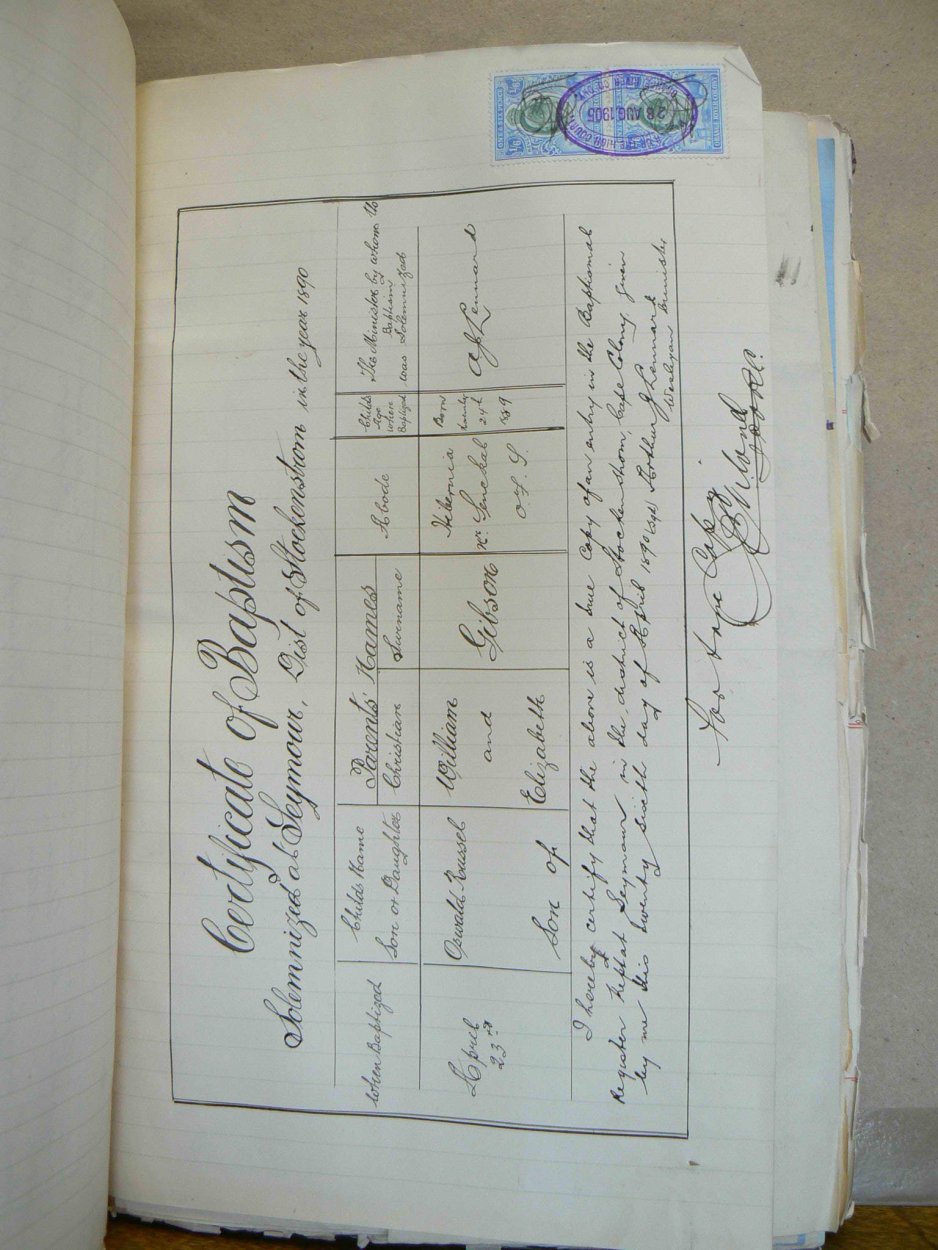 Certificate of Baptism
Solemnized at Seymour, Dist of Stockenstrom in the year 1890
When Baptized
Child's Name
Son or Daughter
Parents' Names
Christian
Surname
Abode
Child's
Age
when
Baptized
The Minister by whom the
Baptism
was Solemnized
April
23rd
Oswald Russel
Son of
William
and
Elizabeth
Gibson
Hibernia
nr Senekal
O.F.S.
Born
24th
1889
A J Lennard
I hereby certify that the above is a true Copy of an entry in the Baptismal
Register kept at Seymour in the district of Stockenstrom, Cape Colony, given
by me this twenty sixth day of April 1890 (sgd) Arthur J Lennard
Wesleyan Minister
True Copy
28 AUG. 1905